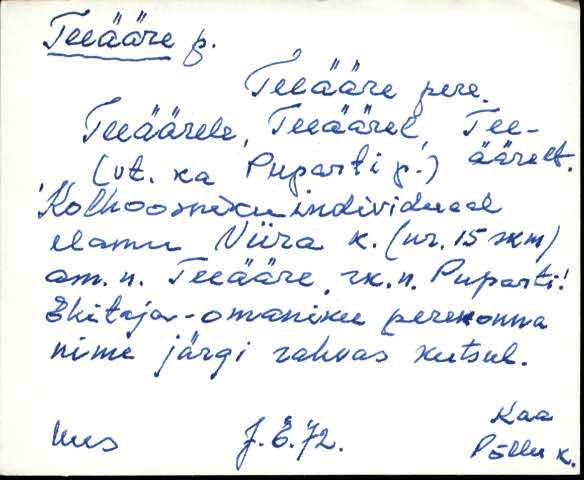 Teeääre p.
Teeääre pere.
Teeäärele, Teeäärel, Tee-
(vt. ka Puparti p.) äärelt.
Kolhoosniku individuaal
elamu Viira k. (nr. 15 skm)
am. n. Teeääre, rk. n. Puparti!
Ehitaja-omaniku perekonna
nime järgi rahvas kutsub.
Kaa
J. E. 72.
Põllu k.